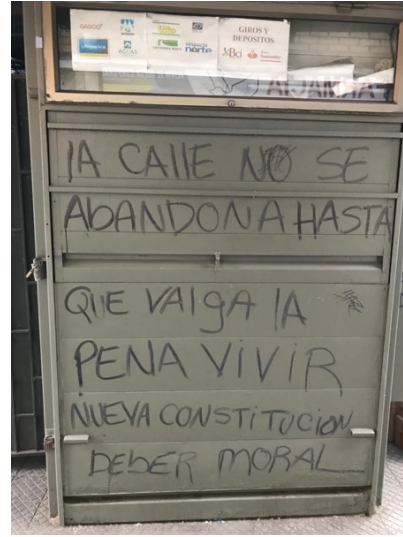 GIROS Y
DEPOSITOS
Bci
Santander
AGUAS
norte
LA CALLE NO SE
ABANDONA HASTA
QUE VALgA LA
PENA ViViR
NUEVA CONSTiTUCiON
DEBER MORAL